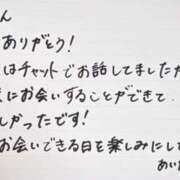 ん
ありがとう!
はチャットでお話してましたが
にお会いすることができて
しかったです!
お会いできる日を楽しみにして
あい